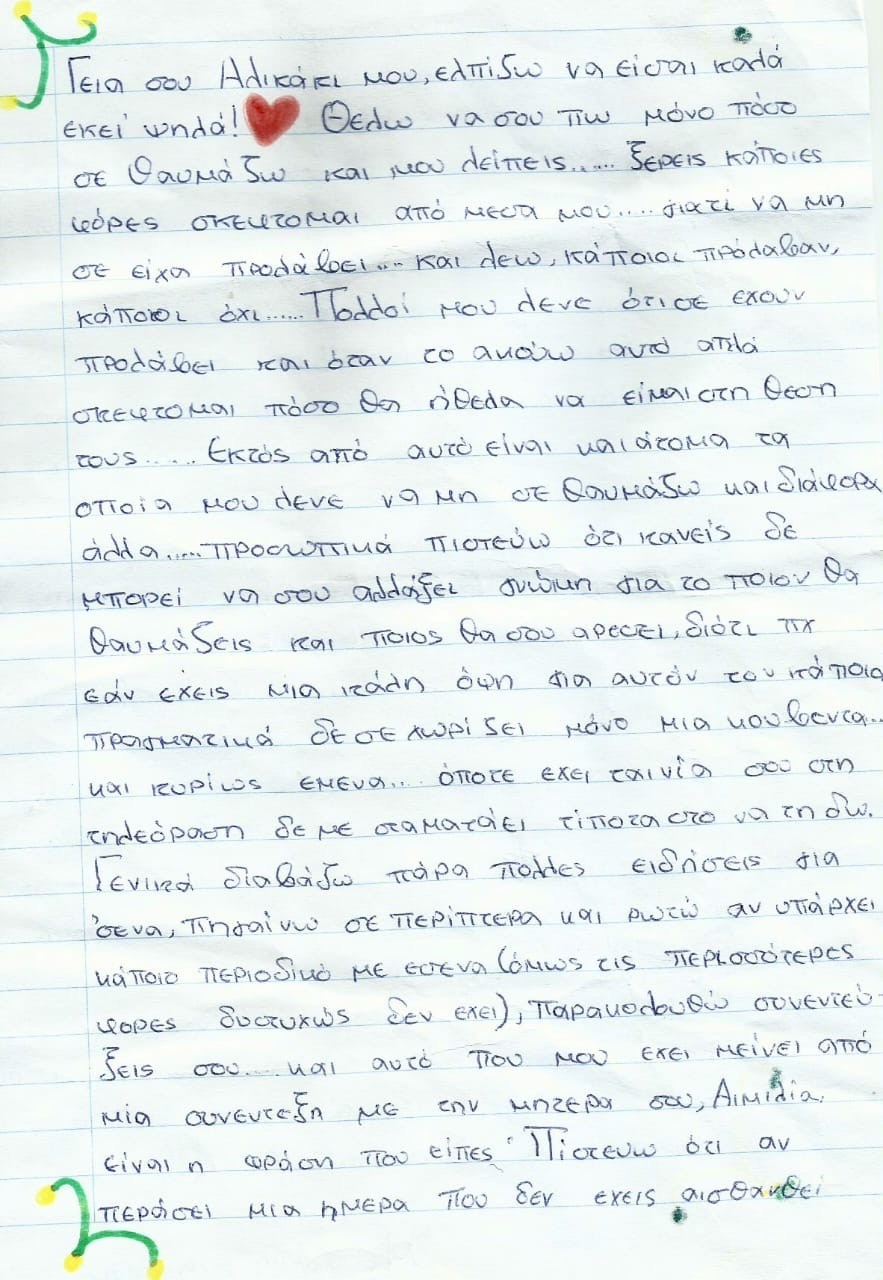 Γεια σου Αλικάκι μου, ελπιζω να είσαι καλά
εκεί ψηλά! Θελω να σου πω μόνο πόσο
σε θαυμάζω και μου λείπεις...... Ξερεις κάποιες
φόρες σκεφτομαι από μεσα μου.... γιατί να μη
σε είχα προλάβει... και λεω, κάποιοι πρόλαβαν,
κάποιοι όχι...... Πολλοί μου λενε ότι σε εχουν
προλάβει και όταν το ακούω αυτό απλά
σκεφτομαι πόσο θα ήθελα να είμαι στη θεση
τους..... Εκτός από αυτό είναι και άτομα τα
οποία μου λενε να μη σε θαυμάζω και διάφορα
άλλα..... προσωπικά πιστεύω ότι κανείς δε
μπορεί να σου αλλάξει γνώμη για το ποιον θα
θαυμάζεις και ποιος θα σου αρεσει, διότι πχ
εάν εχεις μια κάλη όψη για αυτόν τον κάποιο
πραγματικά δε σε χωρίζει μόνο μια κουβεντα...
και κυρίως εμενα... όποτε εχει ταινία σου στη
τηλεόραση δε με σταματάει τίποτα στο να τη δω.
Γενικά διαβάζω πάρα πολλες ειδήσεις για
σενα, πηγαίνω σε περίπτερα και ρωτώ αν υπάρχει
κάποιο περιοδικό με εσενα (όμως τις περισσότερες
φορες δυστυχώς δεν εχει), παρακολουθώ συνεντεύ-
ξεις σου.... και αυτό που μου εχει μείνει από
μία συνεντεξη με την μητερα σου, Αιμιλία.
είναι η φράση που είπες "Πιστευω ότι αν
περάσει μια ημερα που δεν εχεις αισθανθεί